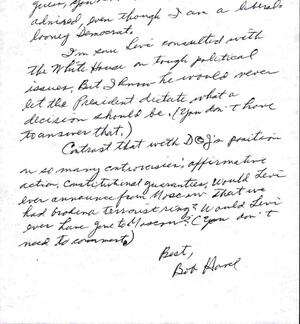 guess, you
admired, even though I am a liberal
looney Democrat.
I'm sure Levi consulted with
the White House on tough political
issues. But I know he would never
let the President dictate what a
decision should be. (You don't have
to answer that.)
Contrast that with DOJ's position
on so many controversies; affirmative
action, constitutional guarantees. Would Levi
ever announce from Moscow that we
had broken a terrorist ring? Would Levi
ever have gone to Moscow? (You don't
need to comment.)
Best,
Bob